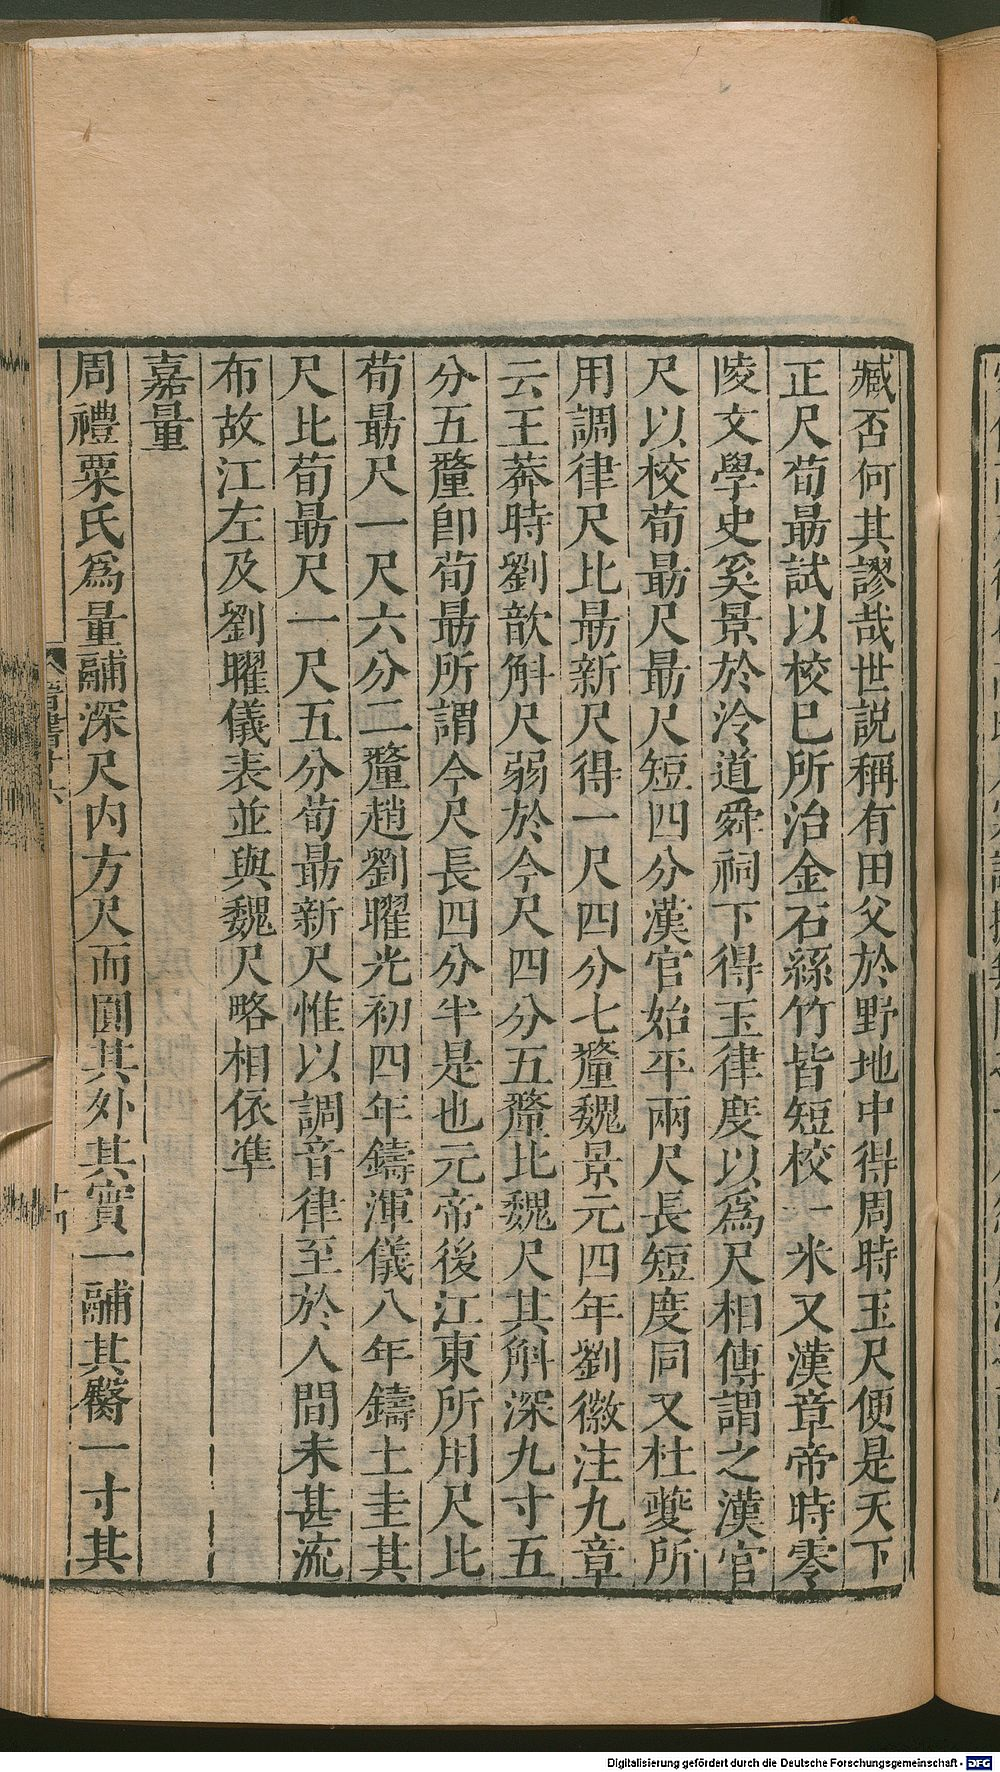 臧否何其謬哉世說稱有田父於野地中得周時玉尺便是天下
正尺荀勗試以校巳所治金石絲竹皆短校一米又漢章帝時零
陵文學史奚景於泠道舜祠下得玉律度以爲尺相傳謂之漢官
尺以校荀勗尺勗尺短四分漢官始平兩尺長短度同又杜夔所
用調律尺比勗新尺得一尺四分七釐魏景元四年劉徽注九章
云王莽時劉歆斛尺弱於今尺四分五釐比魏尺其斛深九寸五
分五釐卽荀勗所謂今尺長四分半是也元帝後江東所用尺比
荀勗尺一尺六分二釐趙劉曜光初四年鑄渾儀八年鑄土圭其
尺比荀勗尺一尺五分荀勗新尺惟以調音律至於人間未甚流
布故江左及劉曜儀表並與魏尺略相依準
嘉量
周禮㮚氏爲量鬴深尺內方尺而圓其外其實一鬴其臋一寸其
晉書十六
十四
Digitalisierung gefördert durch die Deutsche Forschungsgemeinschaft - DFG